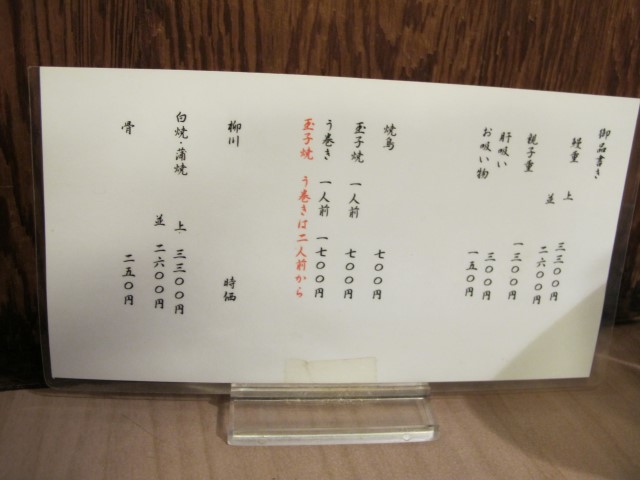 御品書き
鰻重 上 三三〇〇円
並 二六〇〇円
親子重 一三〇〇円
肝吸い 三〇〇円
お吸い物 一五〇円
焼鳥 七〇〇円
玉子焼 一人前 七〇〇円
う巻き 一人前 一七〇〇円
玉子焼 う巻きは二人前から
柳川 時価
白焼・蒲焼 上 三三〇〇円
並 二六〇〇円
骨 二五〇円